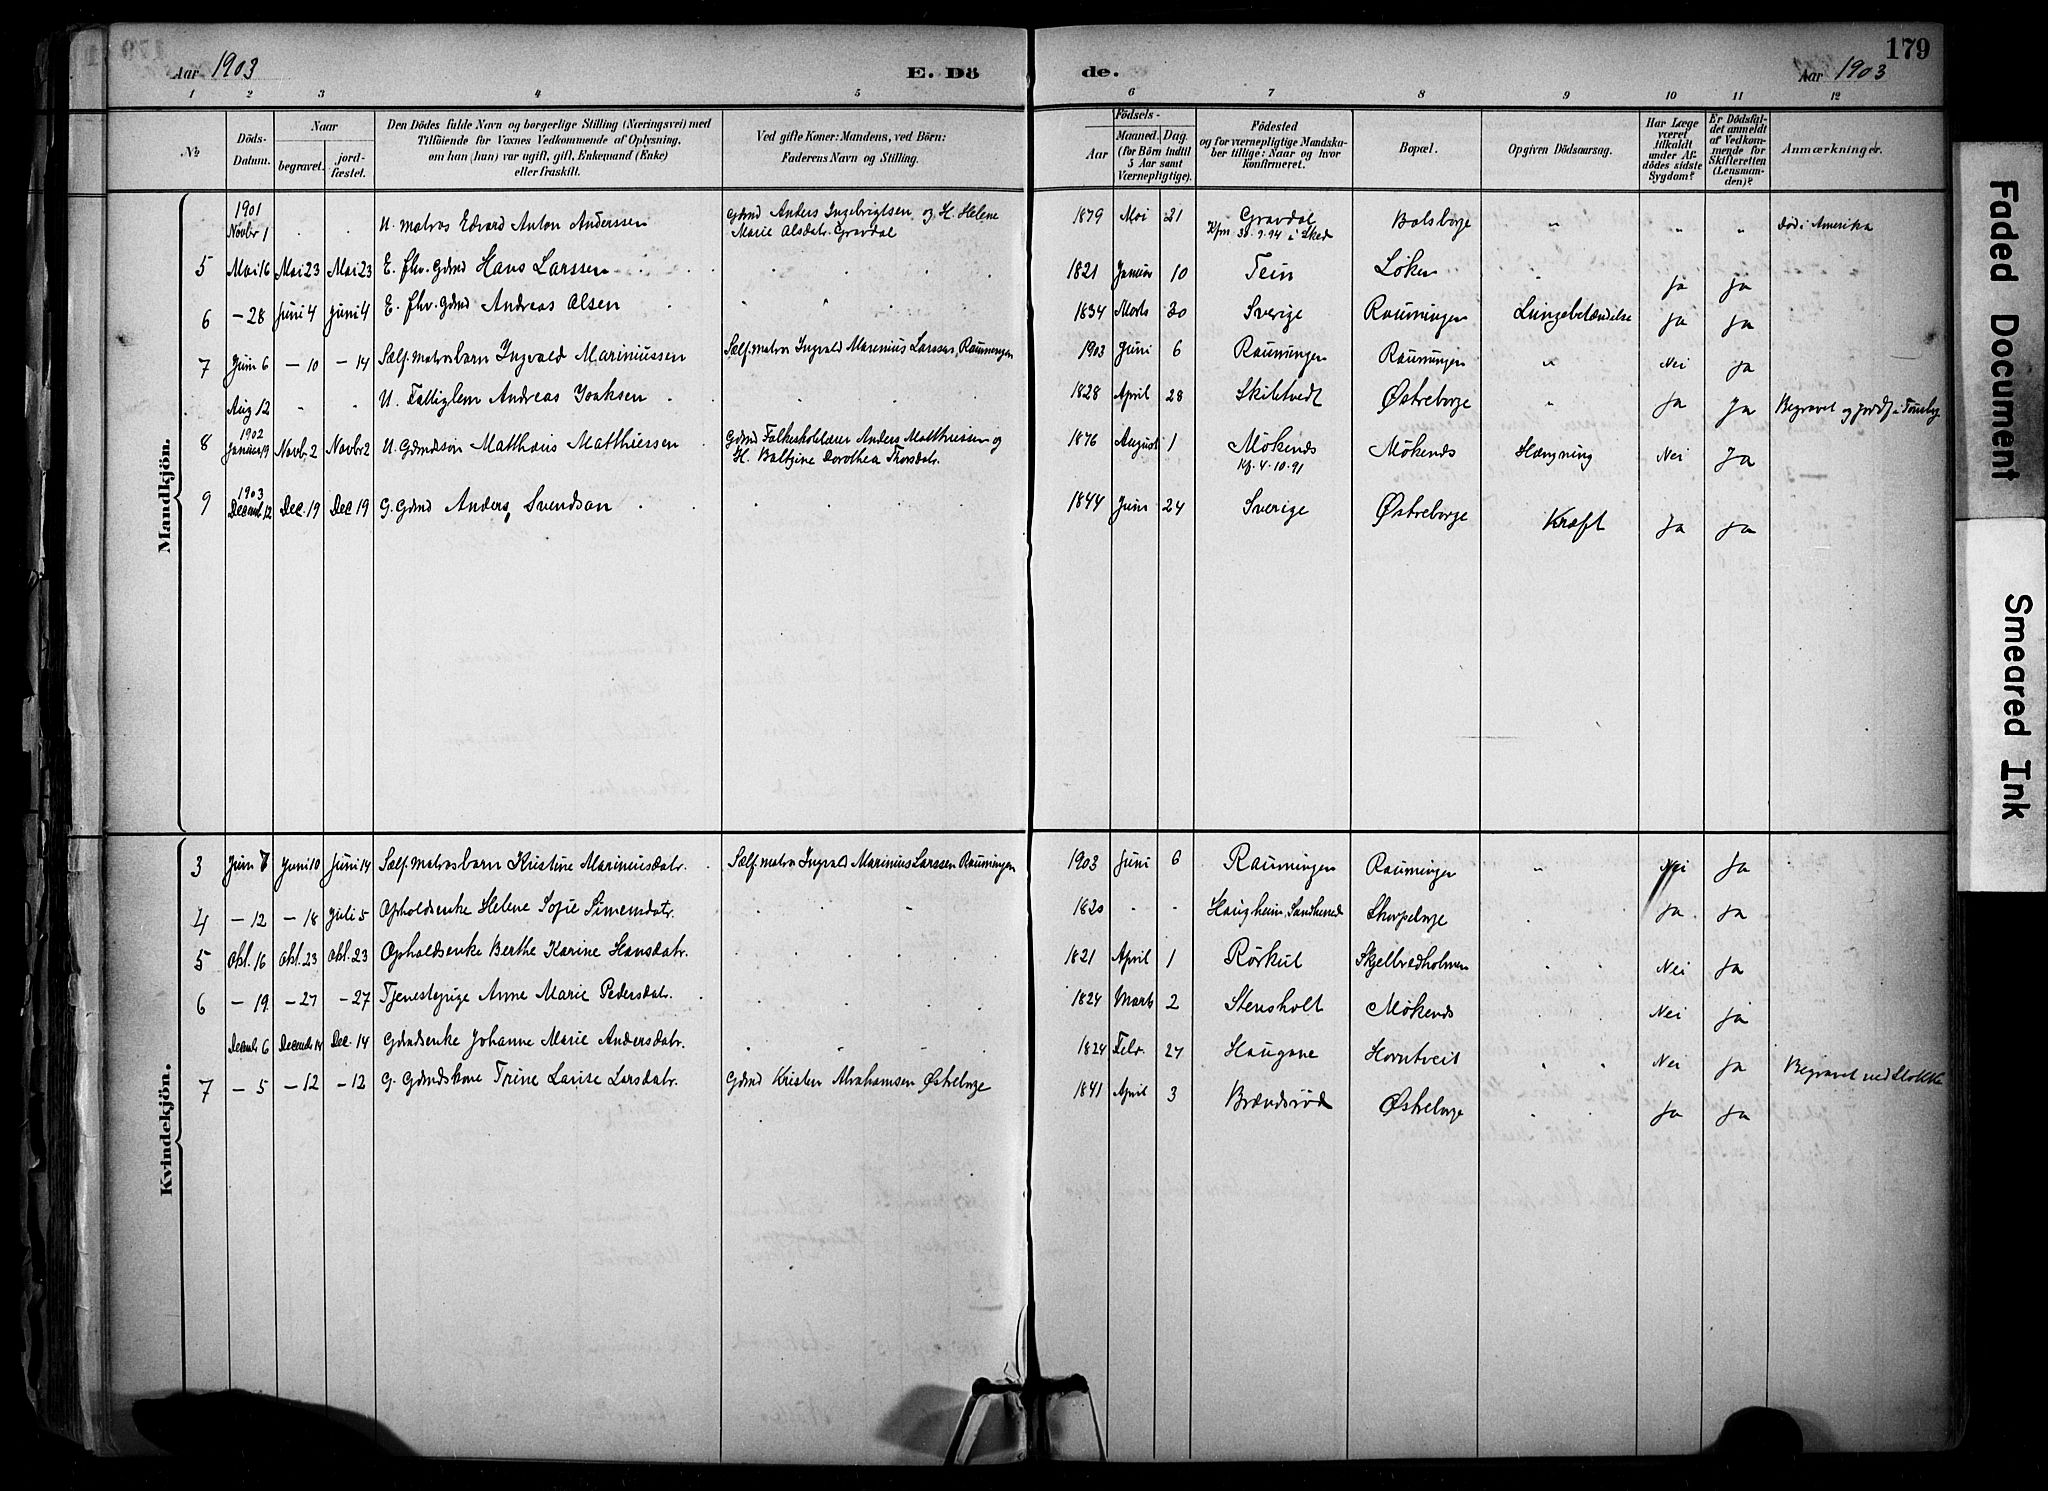 179
Aar 1903
E. Dö
de.
Aar 1903
1 2 3 4 5 6 7 8 9 10 11 12
№
Döds-Datum.
Naar
begravet.
jord-fæstet.
Den Dödes fulde Navn og borgerlige Stilling (Næringsvei) med
Tilföiende for Voxnes Vedkommende af Oplysning,
om han (hun) var ugift, gift, Enkemand (Enke)
eller fraskilt.
Ved gifte Koner: Mandens, ved Börn:
Faderens Navn og Stilling.
Födsels-
Aar
Maaned. Dag.
(for Börn indtil
5 Aar samt
Værnepligtige).
Födested
og for værnepligtige Mandska-
ber tillige: Naar og hvor
konfirmeret.
Bopæl.
Opgiven Dödsaarsag.
Har Læge
været
tilkaldt
under Af-
dödes sidste
Sygdom?
Er Dödsfal-
det anmeldt
af Vedkom-
mende for
Skifteretten
(Lensman-
den)?
Anmærkninger.
Mandkjön.
1901 Novbr 1 U. matros Edvard Anton Anderssen Gdmd Anders Ingebrigtsen og H. Helene 1879 Mai 21 Gravdal Bolsborge " " " Död i Amerika
Marie Olsdatr. Gravdal Kfm 30.9.94 i Sked
5 Mai 16 Mai 23 Mai 23 E. fhv. Gdmd Hans Larssen 1821 Januar 10 Tein Löken " Ja Ja
6 - 28 Juni 4 Juni 4 E. fhv. Gdmd Andreas Olsen " " " 1834 Marts 30 Sverige Raumingen Lungebetændelse Ja Ja
7 Juni 6 - 10 - 14 Sælf. matrosbarn Ingvald Mariniussen Sælf. matros Ingvald Marinius Larssen, Raumingen 1903 Juni 6 Raumingen Raumingen " Nei Ja
Aug 12 " " U. Fattiglem Andreas Isaksen 1828 April 28 Skiltvedt Østreborge " Ja Ja Begravet og jordf. i Tönsberg
8 1902 Januar 19 Novbr 2 Novbr 2 U. Gdmdssön Matthæus Matthiessen Gdmd Folkeskolelærer Anders Matthiessen og 1876 August 1 Mökenös Mökenös Hængning Nei Ja
H. Boltzine Dorothea Thorsdatr. Kf. 4.10.91
9 1903 Decembr 12 Dec. 19 Dec 19 G. Gdmd Anders Svendsen 1844 Juni 24 Sverige Østreborge Kræft Ja Ja
Kvindekjön.
3 Juni 7 Juni 10 Juni 14 Sælf. matrosbarn Kristine Mariniusdatr. Sælf. matros Ingvald Marinius Larssen Raumingen 1903 Juni 6 Raumingen Raumingen " Nei Ja
4 - 12 - 18 Juli 5 Opholdsenke Helene Sofie Simensdatr. 1820 - - Haugheim, Sandherred Skorpeborge Ja Ja
5 Okt. 16 Okt. 23 Okt. 23 Opholdsenke Berthe Karine Hansdatr. 1821 April 1 Rörkul Skjelbredholmen Nei Ja
6 - 19 - 27 - 27 Tjenestepige Anne Marie Pedersdatr. 1824 Marts 2 Stensholt Mökenös Nei Ja
Decmbr 6 Decmbr 14 Dec. 14 Gdmdsenke Johanne Marie Andersdatr. 1824 Febr. 27 Haugane Horntveit Nei Ja Begravet ved Stokke
7 - 5 - 12 - 12 G. Gdmdskone Trine Lovise Larsdatr. Gdmd Kristen Abrahamsen Østreborge 1841 April 3 Brændsröd Østreborge Ja Ja
Faded Document
Smeared Ink